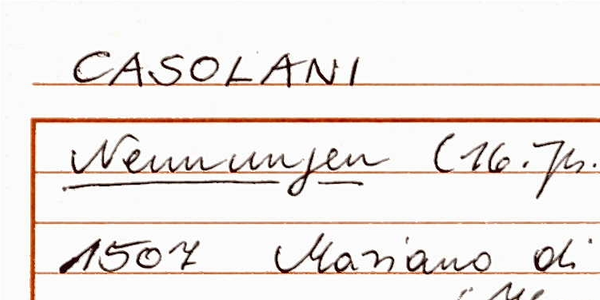 CASOLANI
Nennungen (16. Jh.
1507 Mariano di